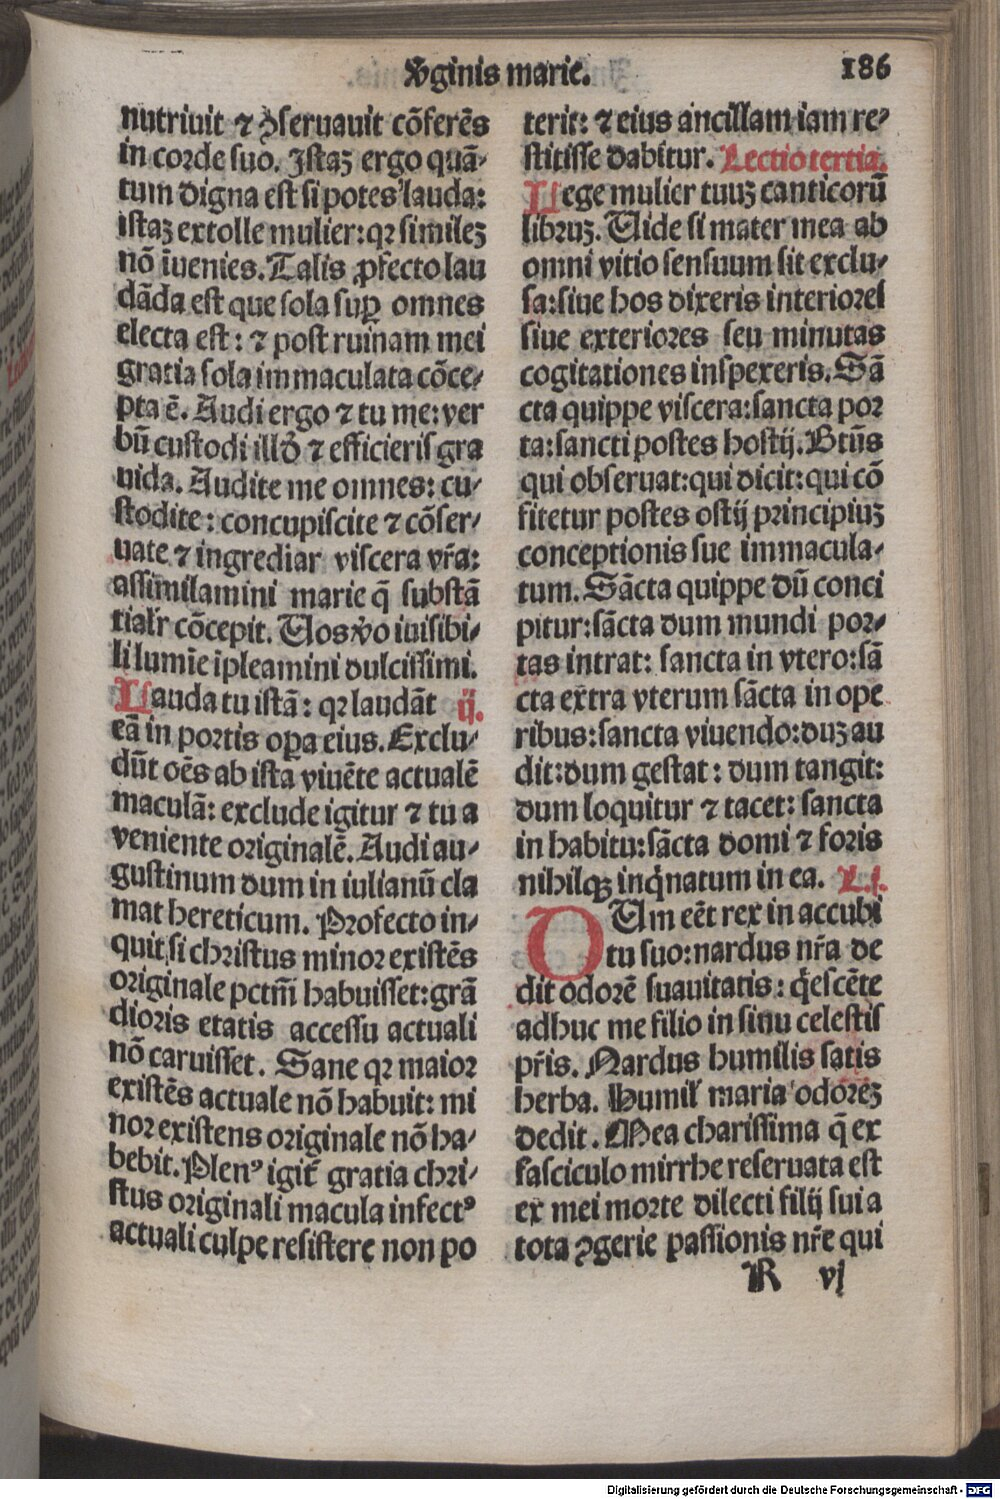 v̄ginis marie.
186
nutriuit ⁊ ꝯseruauit cōferēs
in corde suo. Istaꝫ ergo quā⸗
tum digna est si potes lauda:
istaꝫ extolle mulier: qꝛ simileꝫ
nō īuenies. Talis ꝓfecto lau
dāda est que sola suꝑ omnes
electa est: ⁊ post ruinam mei
gratia sola immaculata cōce⸗
pta ē. Audi ergo ⁊ tu me: ver
bū custodi illđ ⁊ efficieris gra
uida. Audite me omnes: cu⸗
stodite: concupiscite ⁊ cōser⸗
uate ⁊ ingrediar viscera vr̄a:
assimilamini marie q̄ substā
tialr̄ cōcepit. Uos v̄o iuisibi⸗
li lumīe īpleamini dulcissimi.
Lauda tu istā: qꝛ laudāt ij.
eā in portis oꝑa eius. Exclu⸗
dūt oēs ab ista viuēte actualē
maculā: exclude igitur ⁊ tu a
veniente originalē. Audi au⸗
gustinum dum in iulianū cla
mat hereticum. Profecto in⸗
quit si christus minor existēs
originale pctm̄ habuisset: grā
dioris etatis accessu actuali
nō caruisset. Sane qꝛ maior
existēs actuale nō habuit: mi
nor existens originale nō ha⸗
bebit. Plenꝰ igit̄ gratia chri⸗
stus originali macula infectꝰ
actuali culpe resistere non po
terit: ⁊ eius ancillam iam re⸗
stitisse dabitur. Lectio tertia.
Lege mulier tuuꝫ canticorū
libruꝫ. Uide si mater mea ab
omni vitio sensuum sit exclu⸗
sa: siue hos dixeris interiores
siue exteriores seu minutas
cogitationes inspexeris. Sā
cta quippe viscera: sancta por
ta: sancti postes hostij. Btūs
qui obseruat: qui dicit: qui cō
fitetur postes ostij principiuꝫ
conceptionis sue immacula⸗
tum. Sācta quippe dū conci
pitur: sācta dum mundi por⸗
tas intrat: sancta in vtero: sā
cta extra vterum sācta in ope
ribus: sancta viuendo: duꝫ au
dit: dum gestat: dum tangit:
dum loquitur ⁊ tacet: sancta
in habitu: sācta domi ⁊ foris
nihilqꝫ inq̇natum in ea. L.j.
DUm eēt rex in accubi
tu suo: nardus nr̄a de
dit odorē suauitatis: q̇escēte
adhuc me filio in sinu celestis
pr̄is. Nardus humilis satis
herba. Humil' maria odoreꝫ
dedit. Mea charissima q̄ ex
fasciculo mirrhe reseruata est
ex mei morte dilecti filij sui a
tota ꝯgerie passionis nr̄e qui
R vj
Digitalisierung gefördert durch die Deutsche Forschungsgemeinschaft - DFG